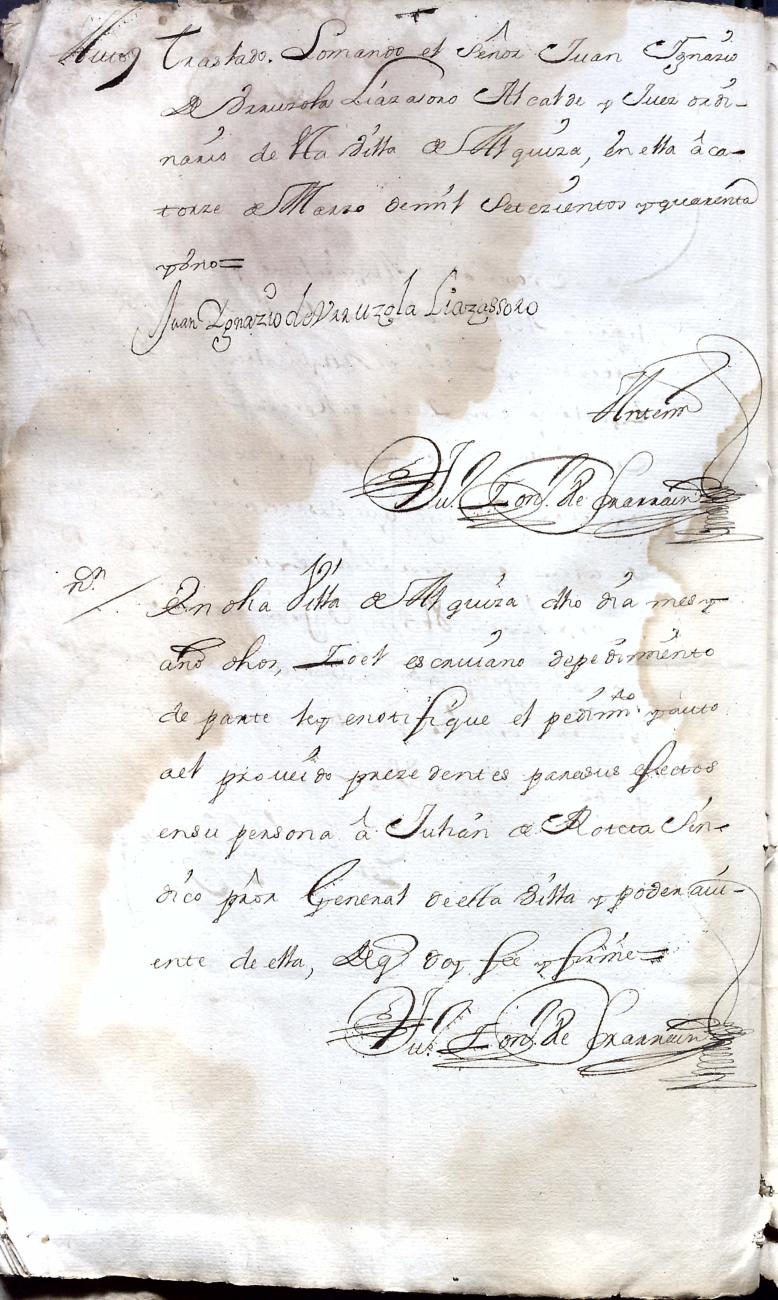 Auto) Traslado. Lo mando el Señor Juan Ygnazio
de Vrruzola Liazasoro Alcalde y Juez ordi-
nario de Na Villa de Alquiza, en ella â ca-
torze de Marzo de mil Setezientos y quarenta
y vno=
Juan Ygnazio de Vrruzola Liazassoro
Antemi
Ju. Ion. de Larrain
nn / En dha Villa de Alquiza dho dia mes y
año dhos, Io el escriuano de pedimiento
de parte ley e notifique el pedimto. y auto
a el proueido prezedentes para sus efectos
en su persona â Julian de Roteta Sin-
dico pror General de ella Villa y poder aui-
ente de ella, de q doy fee y firme=
Ju. Ion. de Larrain